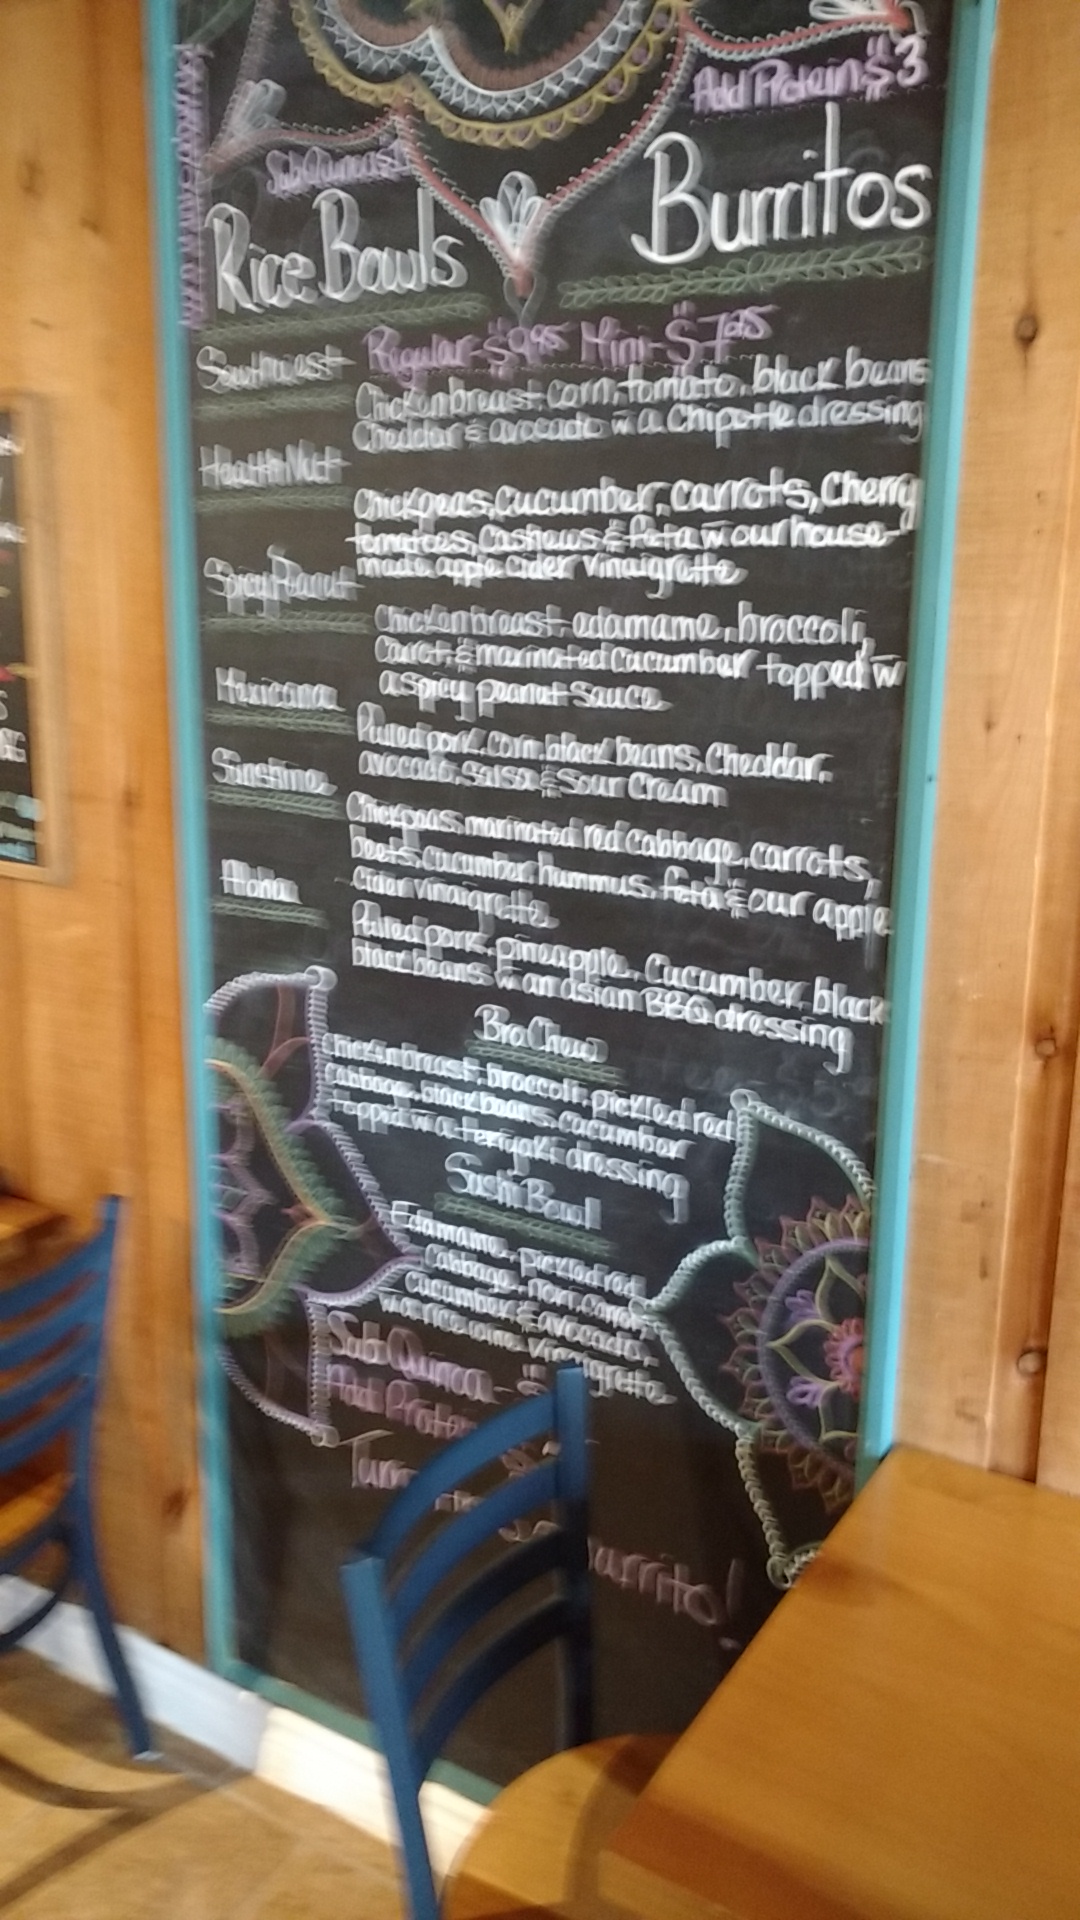 Add Protein $3
Sub Quinoa $1
Rice Bowls
Burritos
Regular-$9.95 Mini-$7.25
Southwest
Chicken breast, corn, tomato, black beans
Cheddar & avocado w a Chipotle dressing
Health Nut
Chickpeas, Cucumber, carrots, Cherry
tomatoes, Cashews & feta w our house
made apple Cider Vinaigrette
Spicy Peanut
Chicken breast, edamame, broccoli,
Carrot, & marinated Cucumber topped w
a spicy peanut Sauce
Mexicana
Pulled pork, Corn, black beans, Cheddar,
avocado, Salsa & Sour Cream
Sunshine
Chickpeas, marinated red Cabbage, carrots,
beets, cucumber, hummus, feta & our apple
Cider vinaigrette
Aloha
Pulled pork, pineapple, Cucumber, black
black beans w an asian BBQ dressing
Bro Chew
Chicken breast, broccoli, pickled red
Cabbage, black beans, Cucumber
topped w a teriyaki dressing
Sushi Bowl
Edamame, pickled red
Cabbage, nori, Carrot,
Cucumber & avocado,
w a rice wine vinaigrette
Sub Quinoa - $
Add Protein
Turn
burrito!